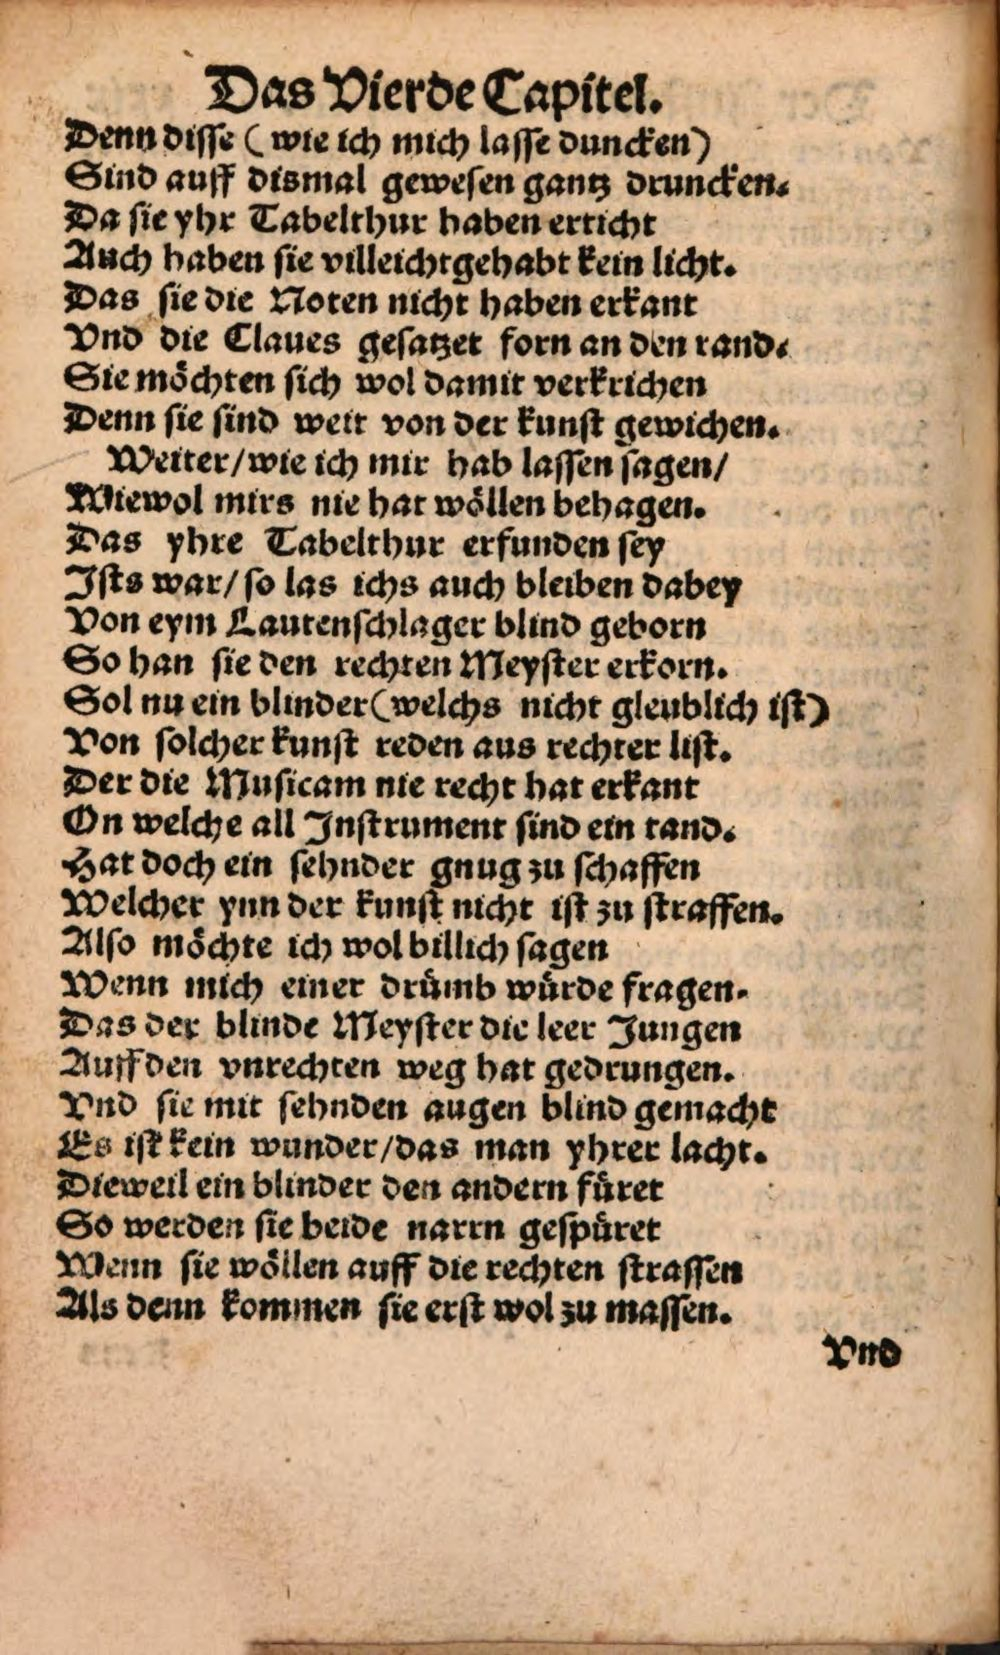 Das Vierde Capitel.
Denn disse (wie ich mich lasse duncken)
Sind auff dismal gewesen gantz druncken.
Da sie yhr Tabelthur haben erticht
Auch haben sie villeicht gehabt kein licht.
Das sie die Noten nicht haben erkant
Vnd die Claues gesatzet forn an den rand.
Sie möchten sich wol damit verkrichen
Denn sie sind weit von der kunst gewichen.
Weiter/wie ich mir hab lassen sagen/
Wiewol mirs nie hat wöllen behagen.
Das yhre Tabelthur erfunden sey
Ists war/so las ichs auch bleiben dabey
Von eym Lautenschlager blind geborn
So han sie den rechten Meyster erkorn.
Sol nu ein blinder (welchs nicht gleublich ist)
Von solcher kunst reden aus rechter list.
Der die Musicam nie recht hat erkant
On welche all Instrument sind ein tand.
Hat doch ein sehnder gnug zu schaffen
Welcher ynn der kunst nicht ist zu straffen.
Also möchte ich wol billich sagen
Wenn mich einer drümb würde fragen.
Das der blinde Meyster die leer Jungen
Auff den vnrechten weg hat gedrungen.
Vnd sie mit sehnden augen blind gemacht
Es ist kein wunder/das man yhrer lacht.
Dieweil ein blinder den andern füret
So werden sie beide narrn gespüret
Wenn sie wöllen auff die rechten strassen
Als denn kommen sie erst wol zu massen.
Vnd